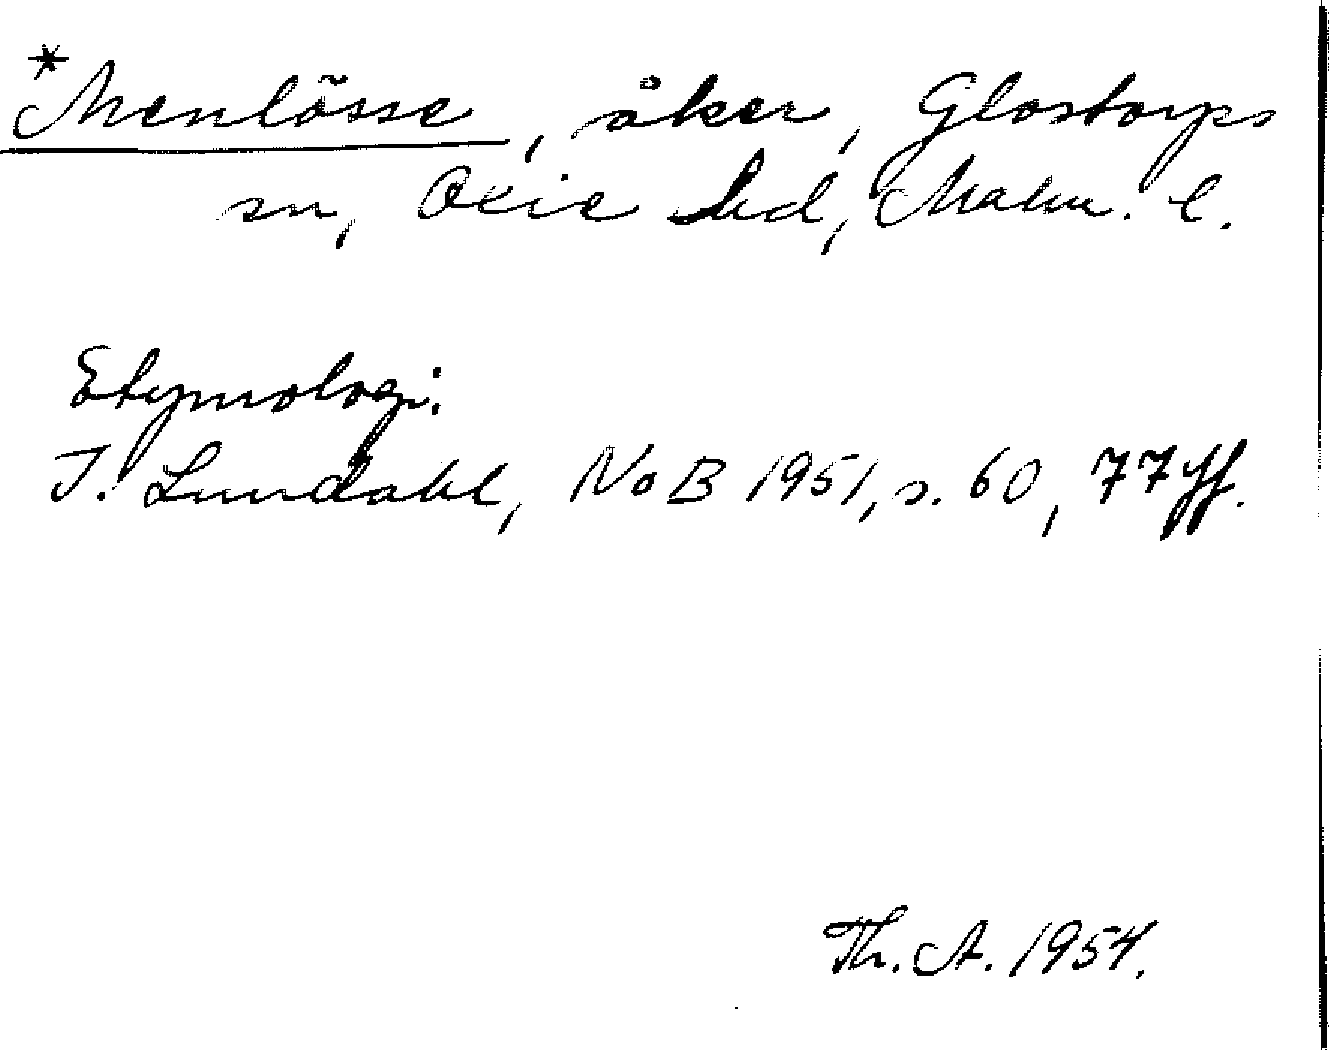 *Menlösse, åker, Glostorps
sn, Oxie hd, Malm. l.
Etymologi:
I. Lundahl, NoB 1951, s. 60, 77 ff.
Th. A. 1954.